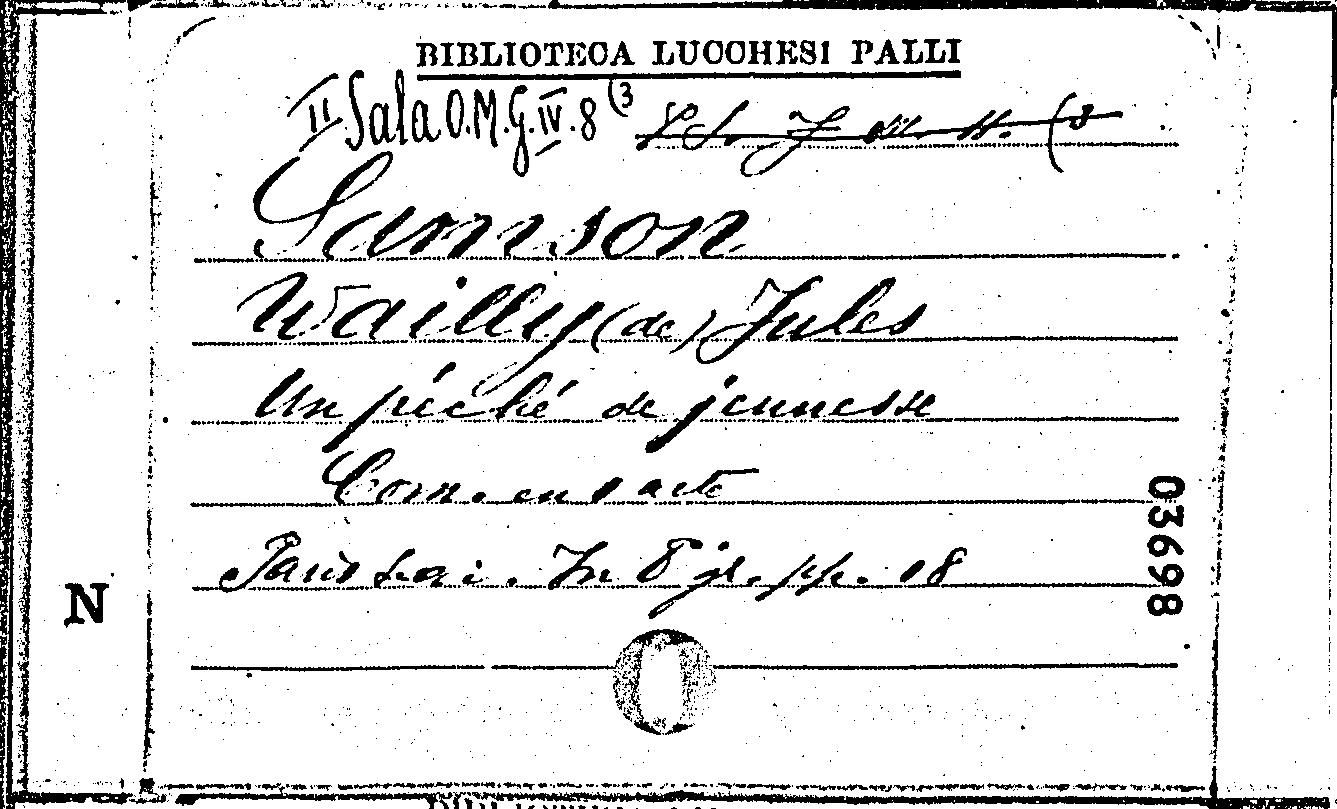 BIBLIOTECA LUCCHESI PALLI
II Sala O.M.G.IV.8 (3
Samson
Wailly (de) Jules
Un péché de jeunesse
Com. en 1 acte
Paris In 8 gr. pp. 18
03698
N